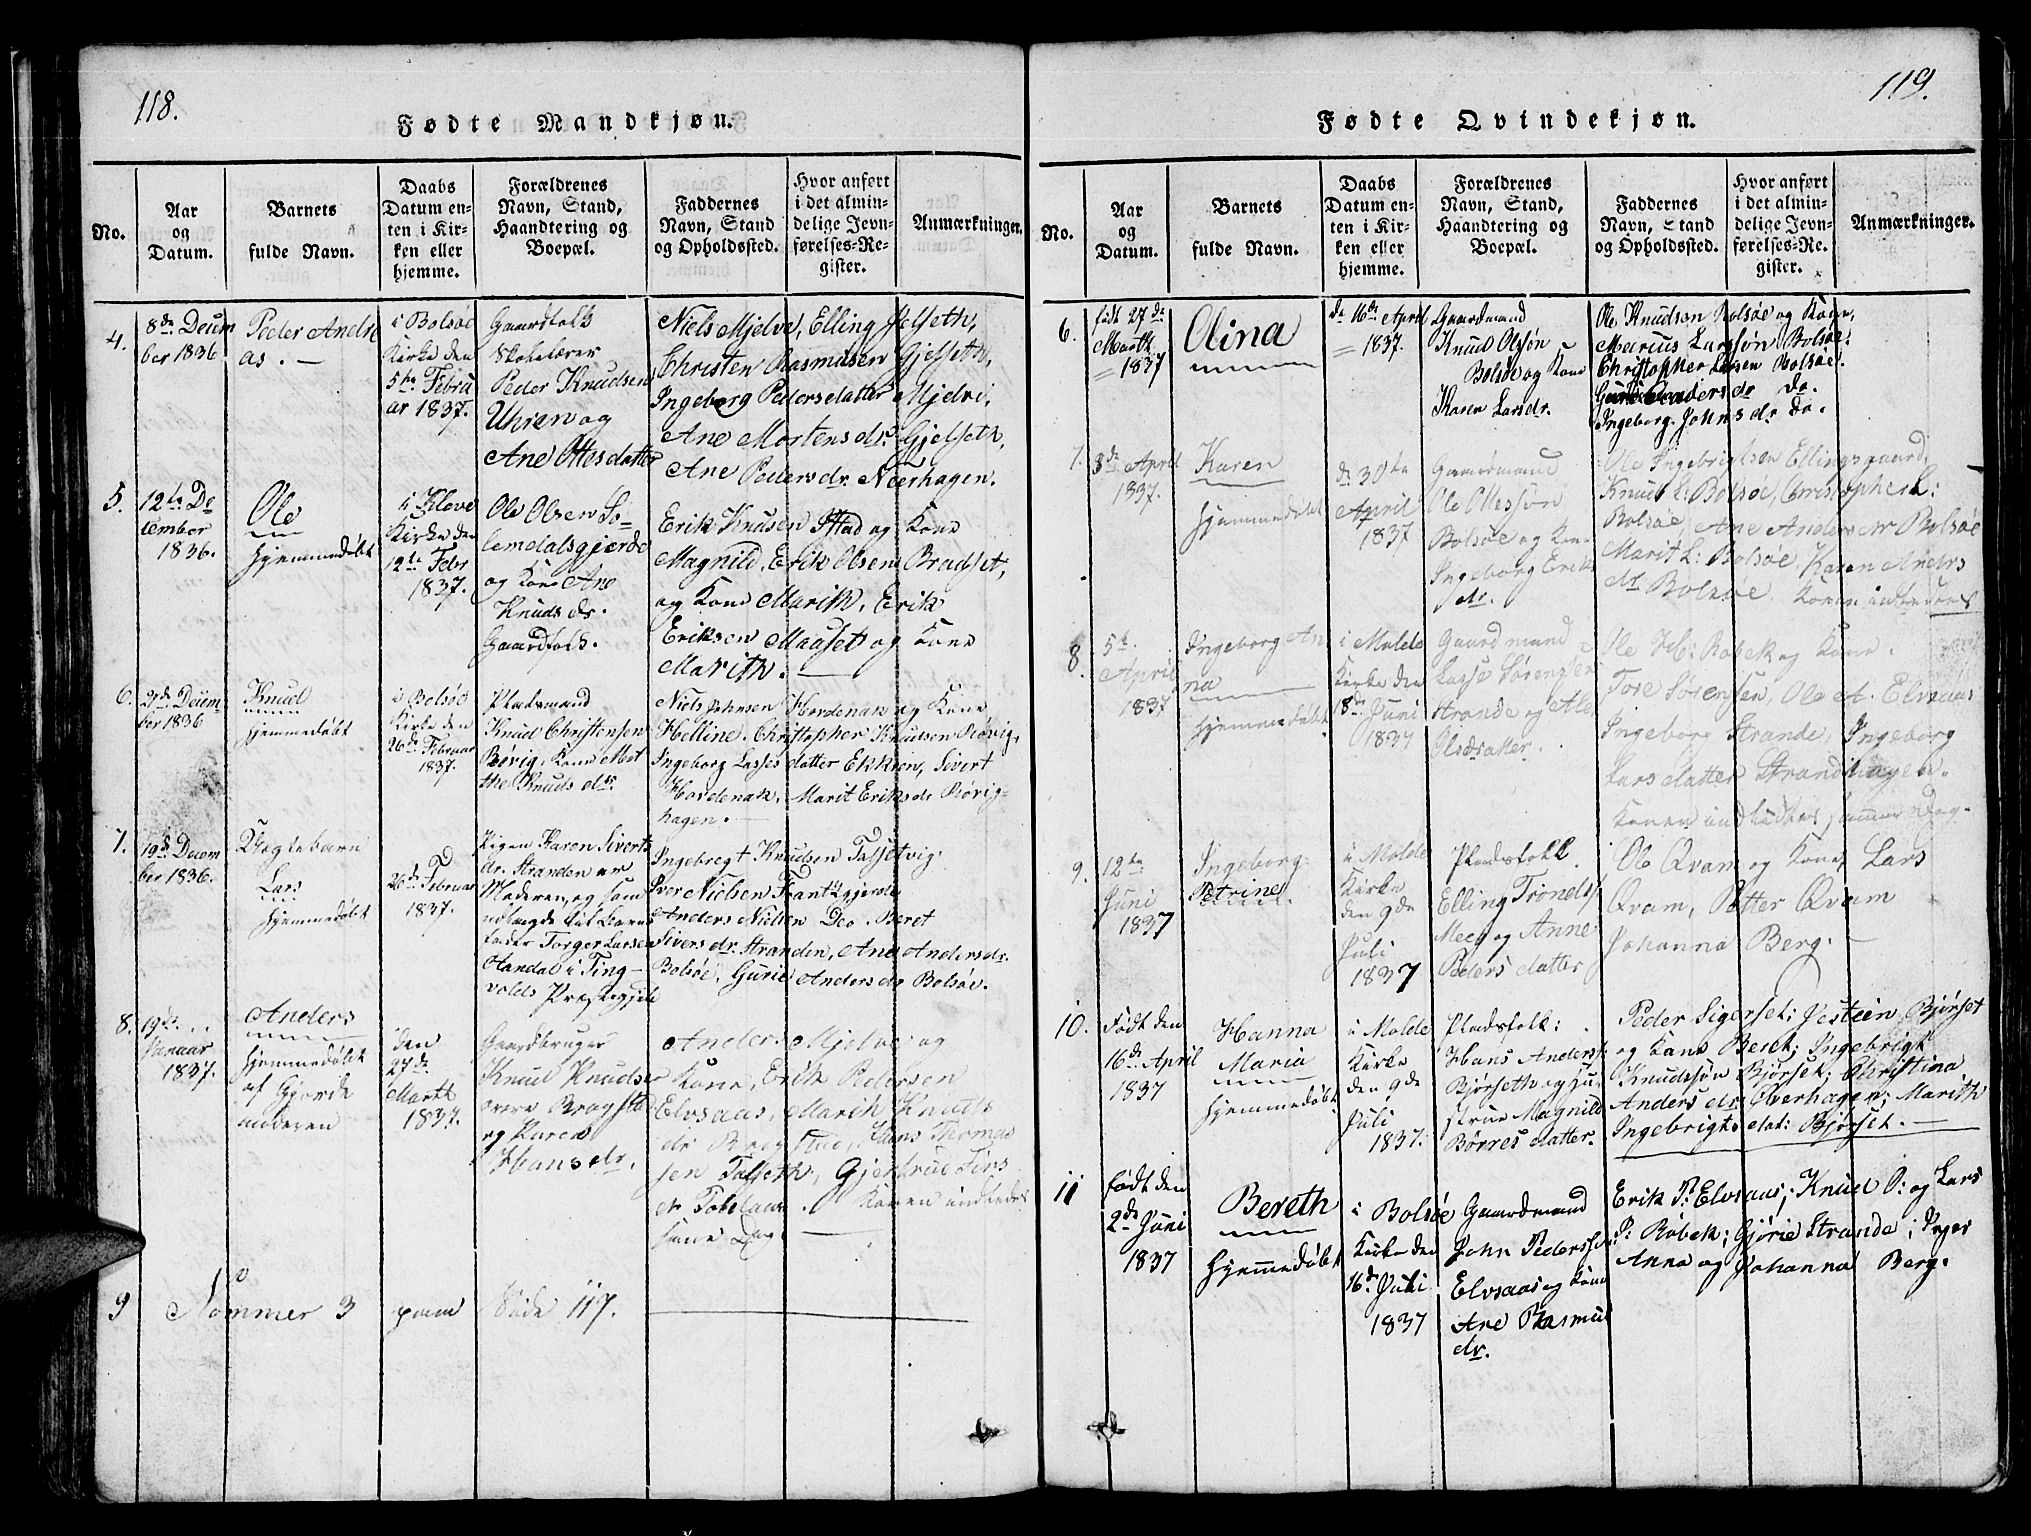 118.
Fødte Mandkjøn.
No.
Aar
og
Datum.
Barnets
fulde Navn.
Daabs
Datum en-
ten i Kir-
ken eller
hjemme.
Forældrenes
Navn, Stand,
Haandtering og
Boepæl.
Faddernes
Navn, Stand
og Opholdssted.
Hvor anført
i det almin-
delige Jevn-
førelses-Re-
gister.
Anmærkninger.
4.
8de Decem
ber 1836
Peder Andre
as. —
i Bolsøe
Kirke den
5te Febru
ar 1837.
Gaardfolk
Skolelærer
Peder Knudsen
Uhren og
Ane Ottesdatter
Niels Mjelve, Elling Jelseth,
Christen Rasmusen Gjelseth,
Ingeborg Pedersdatter Mjelvi,
Ane Mortens dr. Gjelseth,
Ane Peders dr. Neerhagen.
5.
12te De
cember
1836.
Ole
hjemmedøbt
i Kleve
Kirke den
12te Febr
1837.
Ole Olsen So-
lemdalsgjerde
og Kone Ane
Knuds dr.
Gaardfolk.
Erik Knusen Istad og Kone
Magnild, Erik Olsen Bredset,
og Kone Marith, Erik
Eriksen Mauset og Kone
Marith. —
6.
2de Decem-
ber 1836
Knud
hjemmedøbt
i Bolsøe
Kirke den
26de Februar
1837.
Pladsmand
Knud Christensen
Røvig, Kone Met
the Knuds dr.
Niels Johnsen Hordenak og Kone
Helline, Christopher Knudsen Røvig,
Ingeborg Lasses datter Ekkren, Sivert
Hordenak, Marit Eriks dr Røvig-
hagen. —
7.
19de Decem
ber 1836.
Uægtebarn
Lars
hjemmedøbt
26de Februar
1837.
Pigen Karen Siverts
dr. Stranden er
Moderen, og som
udlagde til Barns
fader Torger Larsen
Aandal i Ting-
volds Præstegjeld
Ingebregt Knudsen Talsetvig
Iver Nielsen Frantzgjerde
Anders Nielsen Deo. Beret
Sivers dr. Stranden, Ane Anders dr.
Bolsøe, Gurie Anders dr Bolsøe.
8.
19de
Januar
1837.
Anders
hjemmedøbt
af Gjorde
moderen
Den
27de
Marth
1837.
Gaardbruger
Knud Knudsen
øvre Bragstad
og Karen
Hans dr.
Anders Mjelve og
Kone, Erik Pedersen
Elvsaas, Marith Knuds
dr Bragstad, Hans Thomas
sen Talseth, Gjertrue Fins
dr Tøklaus. Konen indledes
samme Dag. —
9
Nommer 3
paa
Side 117.
119.
Fødte Qvindekjøn.
No.
Aar
og
Datum.
Barnets
fulde Navn.
Daabs
Datum en-
ten i Kir-
ken eller
hjemme.
Forældrenes
Navn, Stand,
Haandtering og
Boepæl.
Faddernes
Navn, Stand
og Opholdssted.
Hvor anført
i det almin-
delige Jevn-
førelses-Re-
gister.
Anmærkninger.
6.
født 27de
Marth
1837
Olina
de 16de April
1837.
Gaardmand
Knud Olsøn
Bolsøe og Kone
Karen Lars dr.
Ole Knudsen Bolsøe og Kone,
Marius Larssøn Bolsøe.
Christopher Larsen Bolsøe.
Gurie Anders dr Do.
Ingeborg Johns dr Do.
7.
3de April
1837.
Karen
hjemmedøbt
de 30te
April
1837
Gaardmand
Ole Ollessøn
Bolsøe og Kon
Ingeborg Erik
dr.
Ole Ingebrigtsen Ellingsgaard,
Knud L: Bolsøe, Christopher L:
Bolsøe, Ane Anders dr Bolsøe
Marit L: Bolsøe, Karen Anders
dr Bolsøe. Konen indledes
8.
5te
April
1837
Ingeborg An
na
hjemmedøbt
i Molde
Kirke den
18de Juni
1837
Gaardmand
Lasse Sørensen
Strande og Ale
Olsdatter.
Ole H: Røbek og Kone.
Tore Sørensen, Ole A. Elvsaas
Ingeborg Strande, Ingeborg
Lars datter Strandhagen.
Konen indledtes samme Dag.
9.
12te
Juni
1837
Ingeborg
Petrine
i Molde
Kirke
den 9de
Juli
1837
Pladsfolk
Elling Trønds
Meeg og Anne
Peders datter
Ole Qvam og Kone, Lars
Qvam, Petter Qvam
Johanna Berg. —
10.
Født den
16de April
1837
Hanna
Maria
hjemmedøbt
i Molde
Kirke
den 9de
Juli
1837.
Pladsfolk:
Hans Anders:
Bjørseth og Hu-
strue Magnild
Børres datter.
Peder Sigerset; Jesteen Bjørset
og Kone Beret; Ingebrigt
Knudssøn Bjørset; Christina
Anders dr Øverhagen; Marith
Ingebrigts dat: Bjørset. —
11
født den
2de Juni
1837
Bereth
hjemmedøbt
i Bolsøe
Kirke den
16de Juli
1837
Gaardmand
John Pedersen
Elvsaas og Kone
Ane Rasmus
dr.
Erik P: Elvsaas; Knud O: og Lars
P: Røbek; Gjørie Strande; Inger
Anna og Johanna Berg.